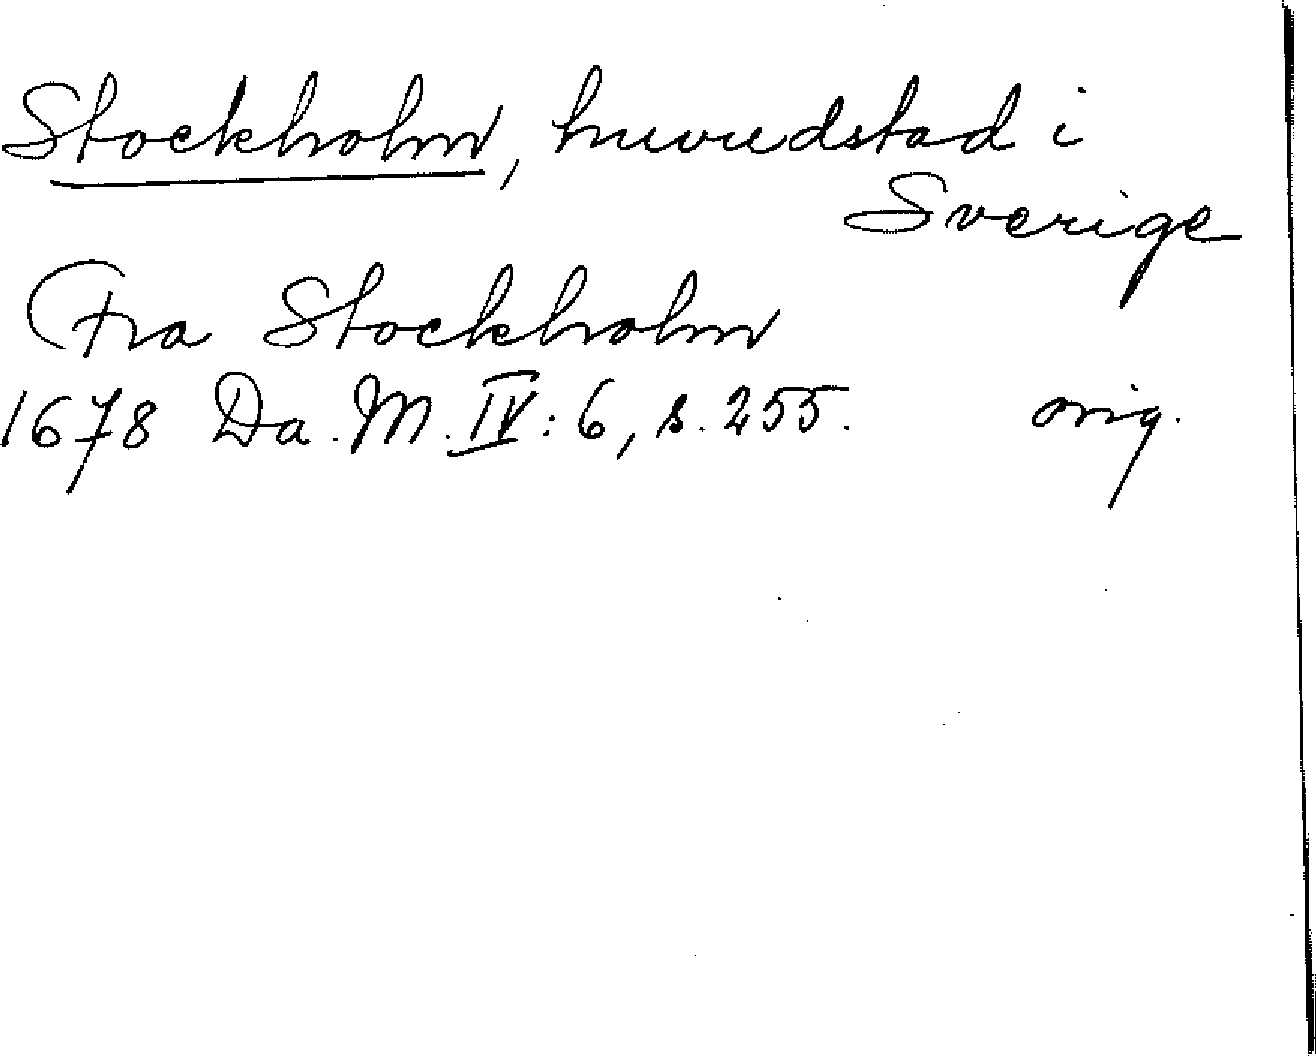 Stockholm, huvudstad i
Sverige
Fra Stockholm
1678 Da. M. IV: 6, s. 255. orig.